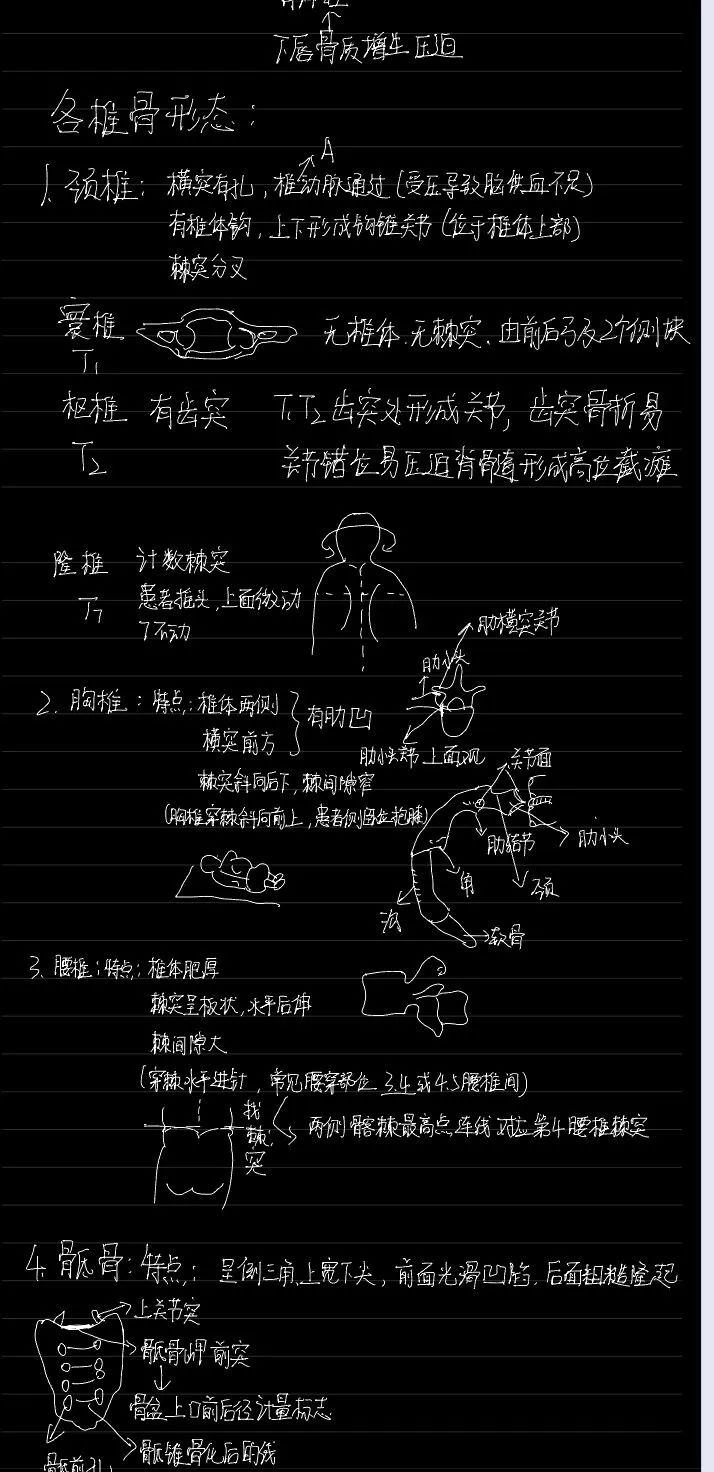 下唇骨质增生压迫
各椎骨形态：
A
1. 颈椎：横突有孔，椎动脉通过（受压导致脑供血不足）
有椎体钩，上下形成钩锥关节（位于椎体上部）
棘突分叉
寰椎 无椎体.无棘突.由前后弓及2个侧块
T₁
枢椎 有齿突 T₁T₂齿突处形成关节，齿突骨折易
T₂ 关节错位易压迫脊髓形成高位截瘫
隆椎 计数棘突
T₇ 患者摇头，上面微动
7不动
肋横突关节
肋小头
2. 胸椎：特点：椎体两侧 有肋凹
横突前方
肋小头关节 上面观
关节面
棘突斜向后下，棘间隙窄
（胸椎穿棘斜向前上，患者侧卧位抱膝）
肋结节 肋小头
角 颈
沟
软骨
3. 腰椎：特点：椎体肥厚
棘突呈板状，水平后伸
棘间隙大
（穿棘水平进针，常见腰穿部位 3.4或4.5腰椎间）
找棘突 两侧髂棘最高点连线对应第4腰椎棘突
4. 骶骨：特点：呈倒三角.上宽下尖，前面光滑凹陷.后面粗糙隆起
上关节突
骶骨岬前突
骨盆上口前后径计量标志
骶锥骨化后的线
骶前孔